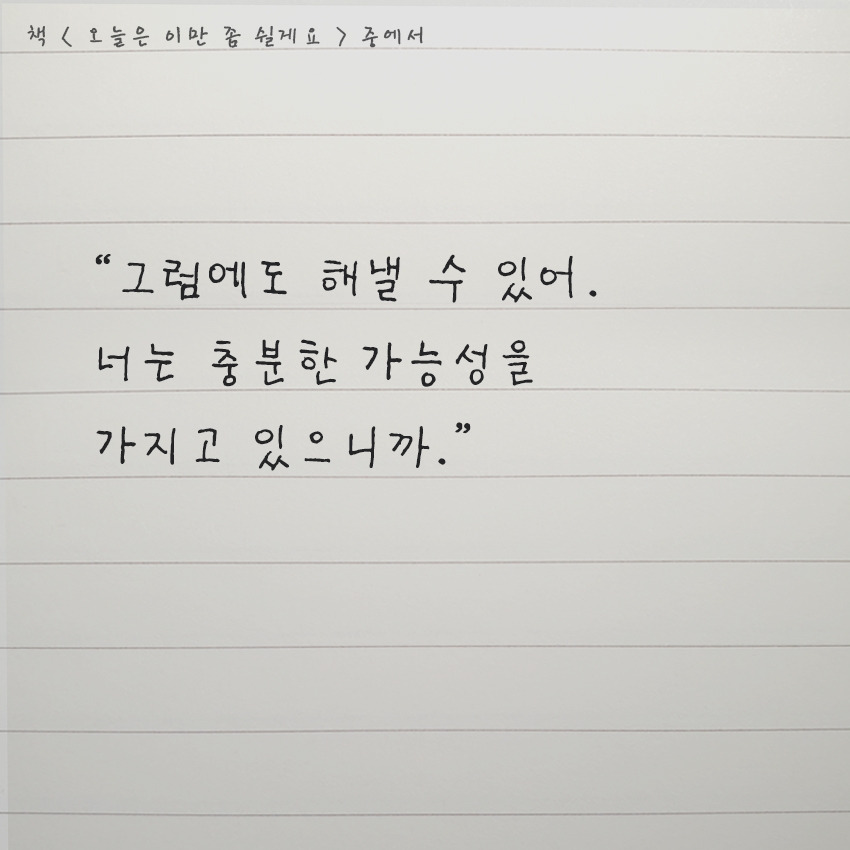 책 < 오늘은 이만 좀 쉴게요 > 중에서
“그럼에도 해낼 수 있어.
너는 충분한 가능성을
가지고 있으니까.”